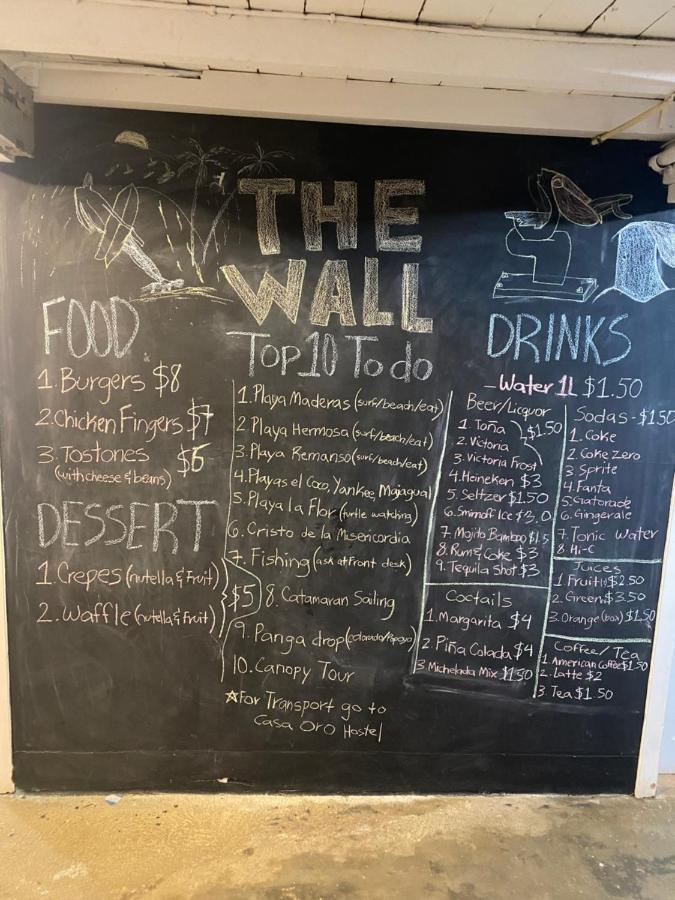 THE
WALL
FOOD
1. Burgers $8
2. Chicken Fingers $7
3. Tostones $6
(with cheese & beans)
DESSERT
1. Crepes (nutella & Fruit)
2. Waffle (nutella & fruit)
$5
Top 10 To do
1. Playa Maderas (surf/beach/eat)
2 Playa Hermosa (surf/beach/eat)
3. Playa Remanso (surf/beach/eat)
4. Playas el Coco, Yankee, Majagual
5. Playa la Flor (turtle watching)
6. Cristo de la Misericordia
7. Fishing (ask at front desk)
8. Catamaran Sailing
9. Panga drop (colorado/Popoyo)
10. Canopy Tour
☆For Transport go to
Casa Oro Hostel
DRINKS
- Water 1L $1.50
Beer/Liquor
1. Toña
2. Victoria
3. Victoria Frost
$1.50
4. Heineken $3
5. Seltzer $1.50
6. Smirnoff Ice $3.0
7. Mojito Bamboo $1.5
8. Rum & Coke $3
9. Tequila shot $3
Coctails
1. Margarita $4
2. Piña Colada $4
3. Michelada Mix $1.50
Sodas - $1.50
1. Coke
2. Coke Zero
3. Sprite
4. Fanta
5. Gatorade
6. Gingerale
7. Tonic Water
8. Hi-C
Juices
1 Fruit $2.50
2. Green $3.50
3. Orange (box) $1.50
Coffee/Tea
1. American Coffee $1.50
2. Latte $2
3. Tea $1.50